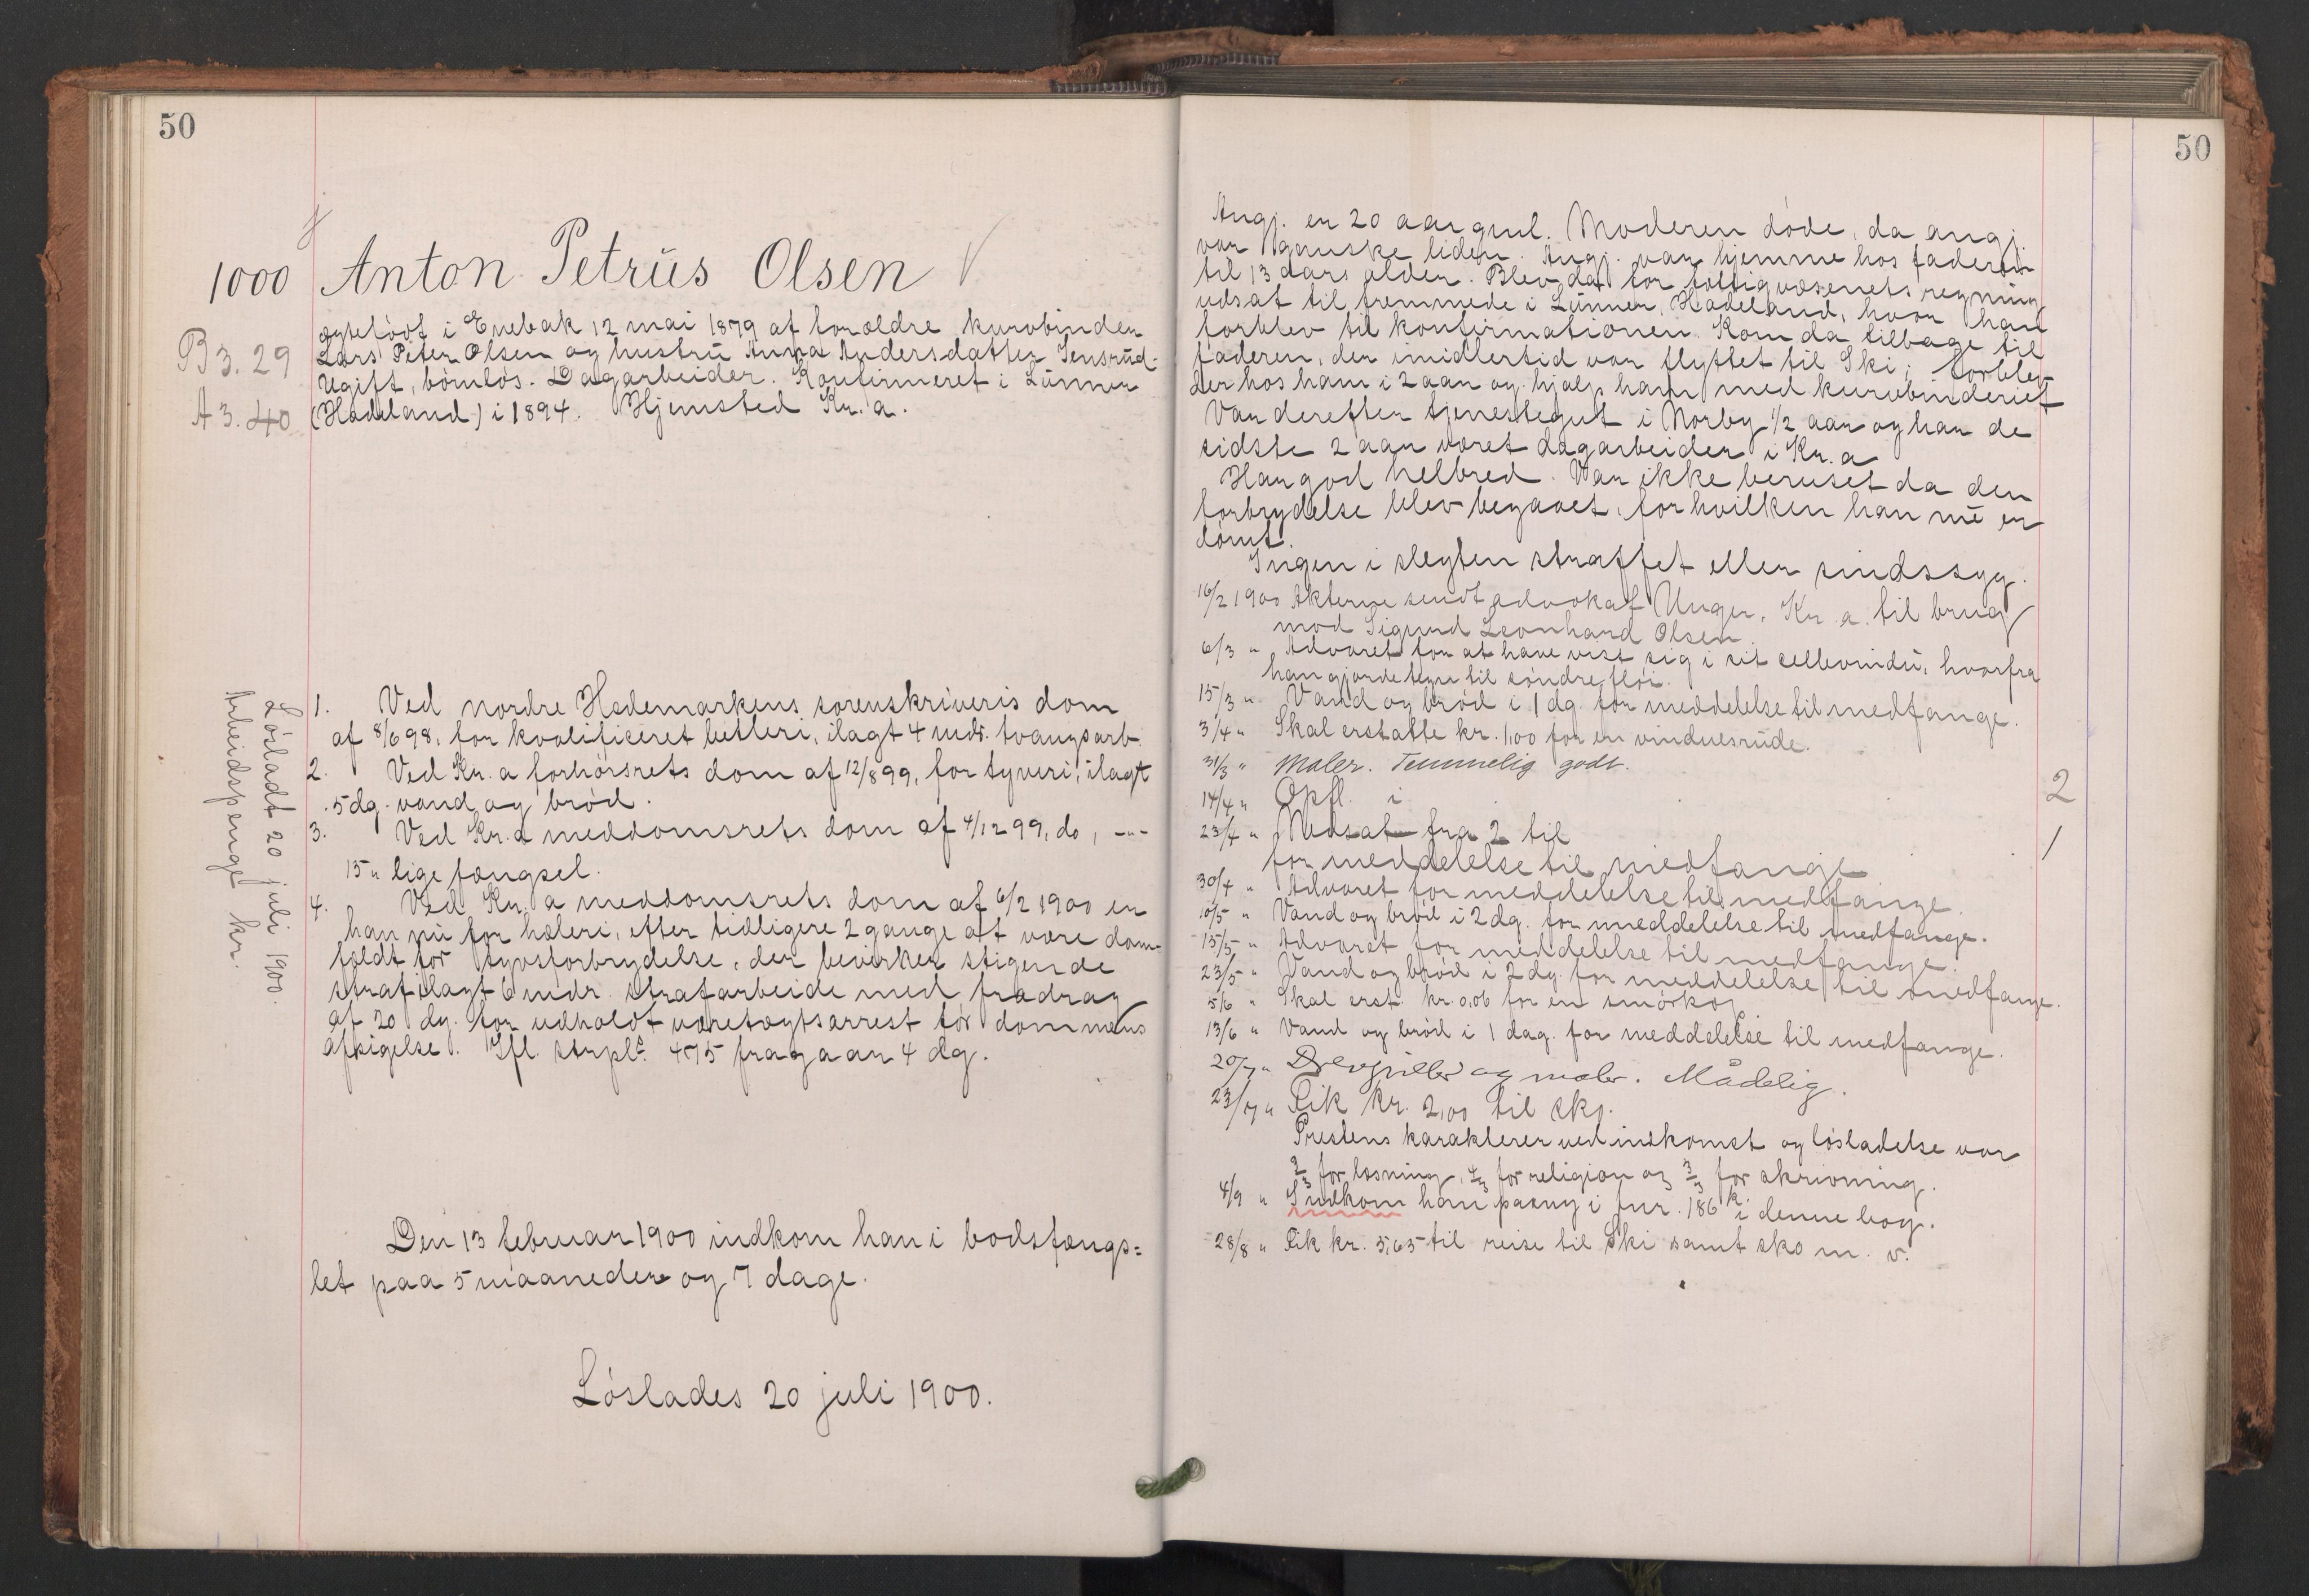 50
1000 Anton Petrus Olsen
B 3. 29
A 3. 40
ægtefødt i Enebak 12 mai 1879 af forældre kurvbinder
Lars Peter Olsen og hustru Anna Andersdatter Jensrud.
Ugift, børnløs. Dagarbeider. Konfirmeret i Lunner
(Hadeland) i 1894. Hjemsted Kr.a.
1. Ved nordre Hedemarkens sorenskriveris dom
af 8/6 98, for kvalificeret betleri, ilagt 4 mdr. tvangsarb.
2. Ved Kr.a forhørsrets dom af 12/8 99, for tyveri, ilagt
5 dg. vand og brød.
3. Ved Kr.a meddomsrets dom af 4/12 99, do, -"-
15 " lige fængsel.
4. Ved Kr.a meddomsrets dom af 6/2 1900 er
han nu for hæleri, efter tidligere 2 gange at være dom-
fældt for tyvsforbrydelse, der bevirker stigende
straf ilagt 6 mdr. strafarbeide med fradrag
af 20 dg. for udholdt varetægtsarrest før dommens
afsigelse. Ifl. strpl. § 475 fragaar 4 dg.
Løsladt 20 juli 1900.
Arbeidspenge kr.
Den 13 februar 1900 indkom han i bodsfængs=
let paa 5 maaneder og 7 dage.
Løslades 20 juli 1900.
50
Angj. er 20 aar gml. Moderen døde, da angj.
var ganske liden. Angj. var hjemme hos faderen
til 13 aars alder. Blev da for fattigvæsenets regning
udsat til fremmede i Lunner, Hadeland, hvor han
forblev til konfirmationen. Kom da tilbage til
faderen, der imidlertid var flyttet til Ski; forblev
der hos ham i 2 aar og hjalp ham med kurvbinderiet
Var derefter tjenestegut i Norby 1/2 aar og har de
sidste 2 aar været dagarbeider i Kr.a
Har god helbred. Var ikke beruset da den
forbrydelse blev begaaet, for hvilken han nu er
dømt.
Ingen i slegten straffet eller sindssyg.
16/2 1900 Akterne sendt advokat Unger, Kr.a. til brug
mod Sigurd Leonhard Olsen.
6/3 " Advaret for at have vist sig i sit cellevindu, hvorfra
han gjorde tegn til søndre fløi.
15/3 " Vand og brød i 1 dg. for meddelelse til medfange.
3/4 " Skal erstatte kr. 1,00 for en vinduesrude.
31/3 " Maler. Temmelig godt.
14/4 " Opfl. i 2
23/4 " Nedsat fra 2 til 1
for meddelelse til medfange
30/4 " Advaret for meddelelse til medfange.
10/5 " Vand og brød i 2 dg. for meddelelse til medfange.
15/5 " Advaret for meddelelse til medfange.
23/5 " Vand og brød i 2 dg. for meddelelse til medfange.
5/6 " Skal erst. kr. 0,06 for en smørkop.
13/6 " Vand og brød i 1 dag. for meddelelse til medfange.
20/7 " og maler. Mådelig.
23/7 " Fik kr. 2,00 til sko.
Prestens karakterer ved indkomst og løsladelse var
3/3 for læsning, 4/3 for religion og 3/3 for skrivning.
4/9 " Indkom han paany i jur. 186 k. i denne bog.
28/8 " Fik kr. 5,65 til reise til Ski samt sko m. v.